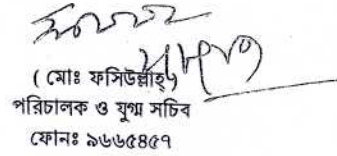 ( মোঃ ফসিউল্লাহ্ )
পরিচালক ও যুগ্ম সচিব
ফোনঃ ৯৬৬৫৪৫৭